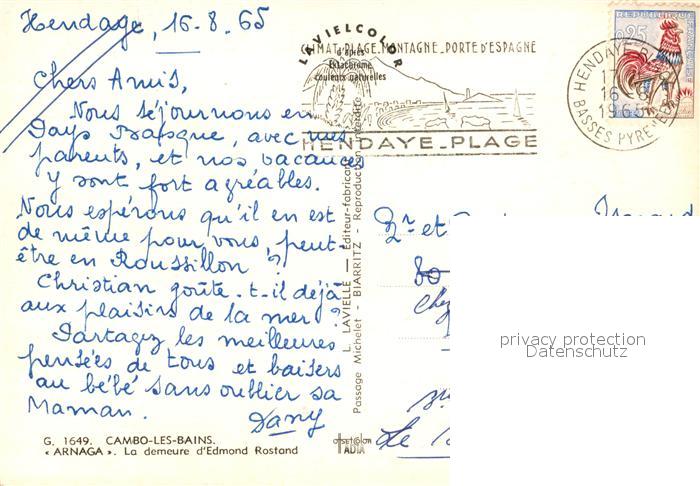 Hendaye, 16-8.65
Chers Amis,
Nous séjournons en
Pays Basque, avec mes
parents, et nos vacances
y sont fort agréables.
Nous espérons qu'il en est
de même pour vous, peut-
être en Roussillon ?
Christian goûte-t-il déjà
aux plaisirs de la mer ?
Partagez les meilleures
pensées de tous et baisers
au bébé sans oublier sa
Maman.
Dany
G. 1649. CAMBO-LES-BAINS.
« ARNAGA ». La demeure d'Edmond Rostand
LAVIELCOLOR
d'après
Ektachrome
couleurs naturelles
L. LAVIELLE — Éditeur-fabricant
Passage Michelet - BIARRITZ - Reproduction interdite
offset color
IADIA
CLIMAT-PLAGE, MONTAGNE-PORTE D'ESPAGNE
HENDAYE-PLAGE
HENDAYE
17
16-8
1965
BASSES PYRENEES
0,25
REPUBLIQUE
et
80
chez
Le
privacy protection
Datenschutz